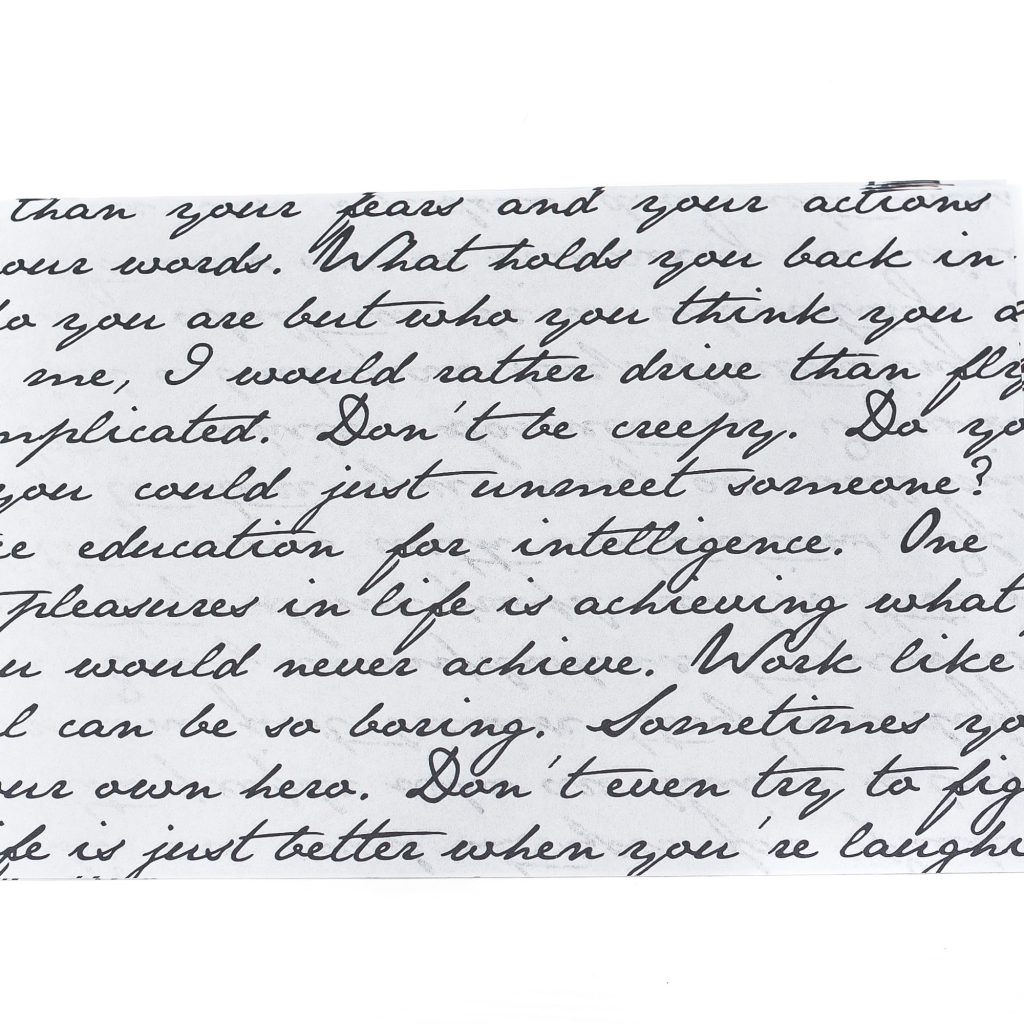 than your fears and your actions
our words. What holds you back in
o you are but who you think you a
me, I would rather drive than fly
mplicated. Don't be creepy. Do yo
you could just unmeet someone?
ce education for intelligence. One
pleasures in life is achieving what
u would never achieve. Work like
l can be so boring. Sometimes yo
our own hero. Don't even try to fig
ife is just better when you're laughi